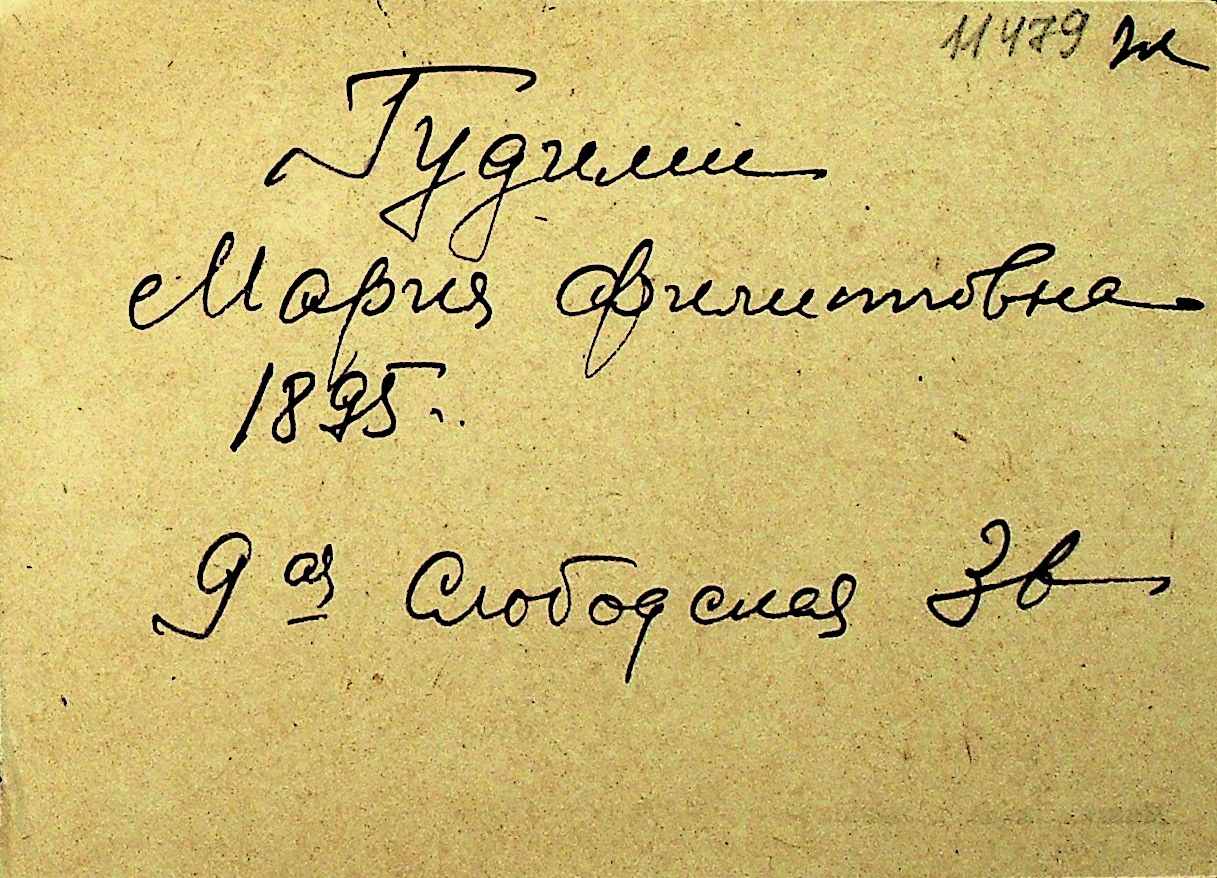 11479 ж
Гудими
Мария Филипповна
1895.
9ая Слободская 3в